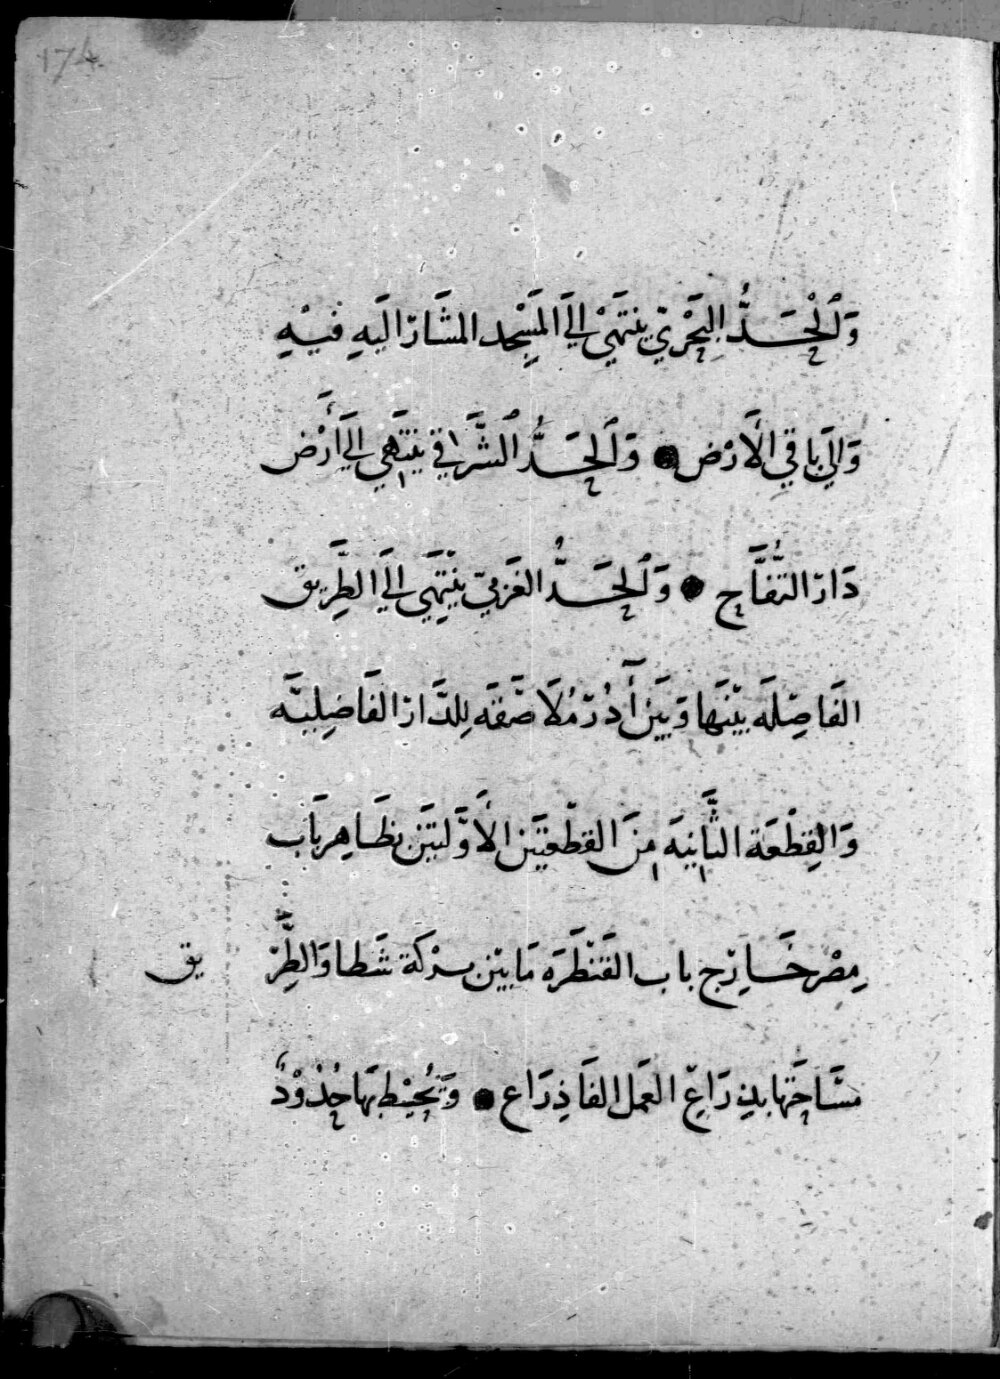 174
وَٱلْحَدُّ البَحَرْيّ يَنتَهَيْ إِلَى المَسِجد المشَار اليَهِ فيْهِ
وَالِيَ بَاقي الأَرْض ● وَٱلحَدُّ ٱلشَّرَ اقي يَنتَهَي إِلَى أَرْض
دَار التُّفَّاحِ ● وَٱلحَدُّ الغَرْبيّ يَنْتَهَي إِلَى الطَّرِيق
الفَاصِّلَه بيْنَهَا وَبَيَنْ أَدُرّ مُلَاصَّقَه لِلدَّار الفَاضِليَّه
وَالِقِطْعَة الثَّانِيَه مِنَ القطْعَتَين الأَوَّلتيَن بظَاهِر بَاب
مِصْر خَارِّج باب القَنْطَرَه مَا بيْن بركَة شَطا وَالطَّرِ يق
مسَّاحَتهَا بذِرَاعِ العَمَل الفَا ذِرَاع ● وَيَحُيْط بَهَا حُدُوْدٌ